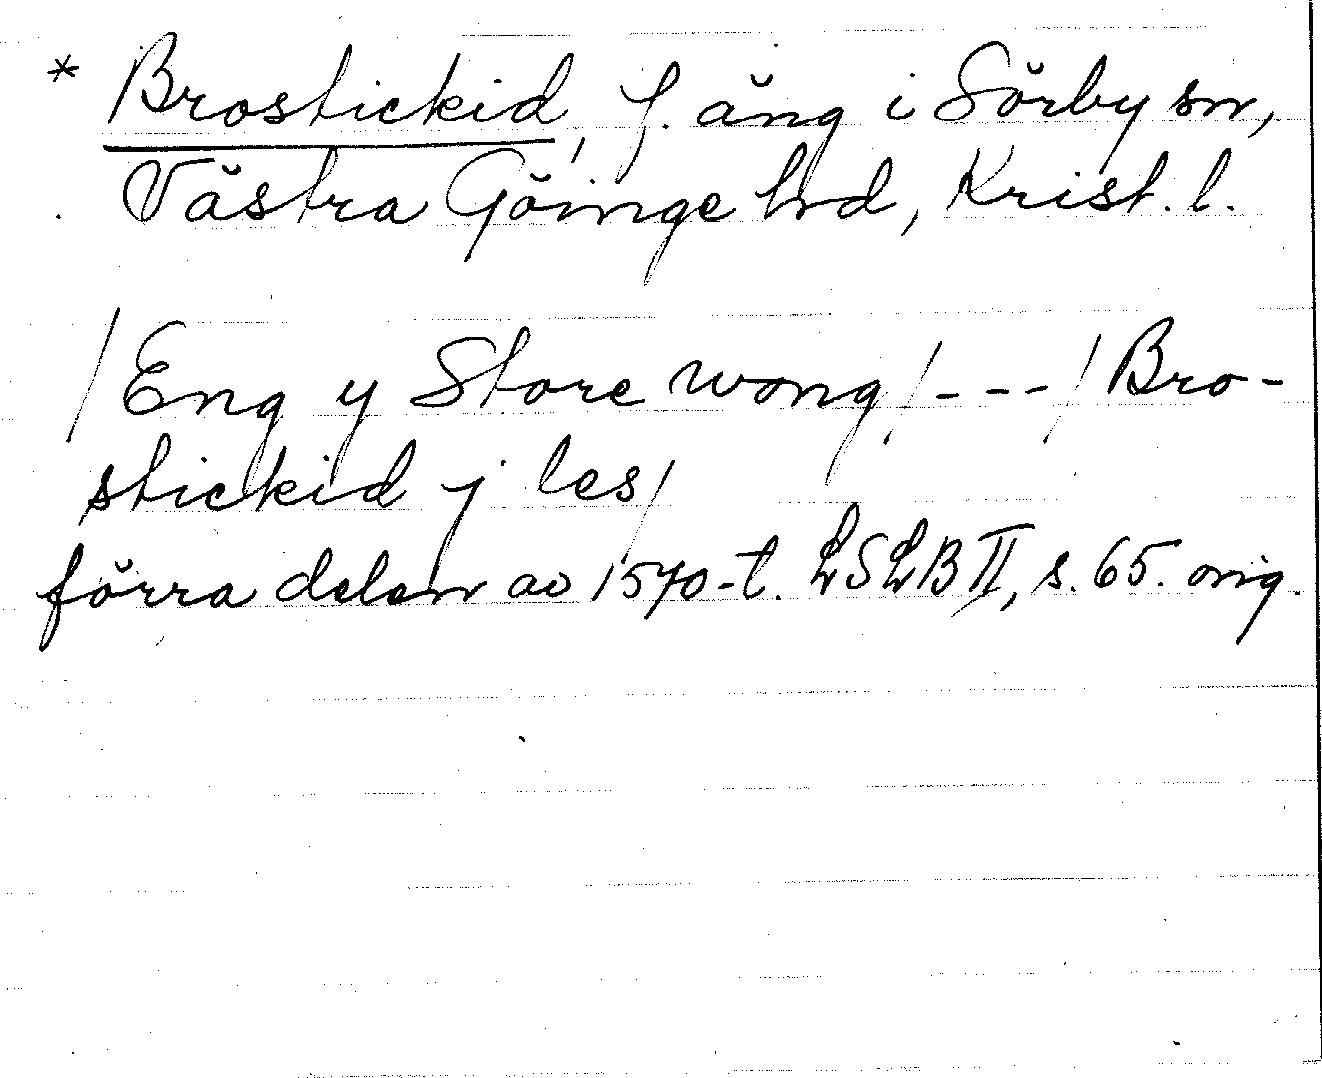 * Brostickid, f. äng i Sörby sn,
Västra Göinge hrd, Krist. l.
/Eng y Store wong/---/Bro-
stickid j les/
förra delen av 1570-t. LSLB II, s. 65. orig.